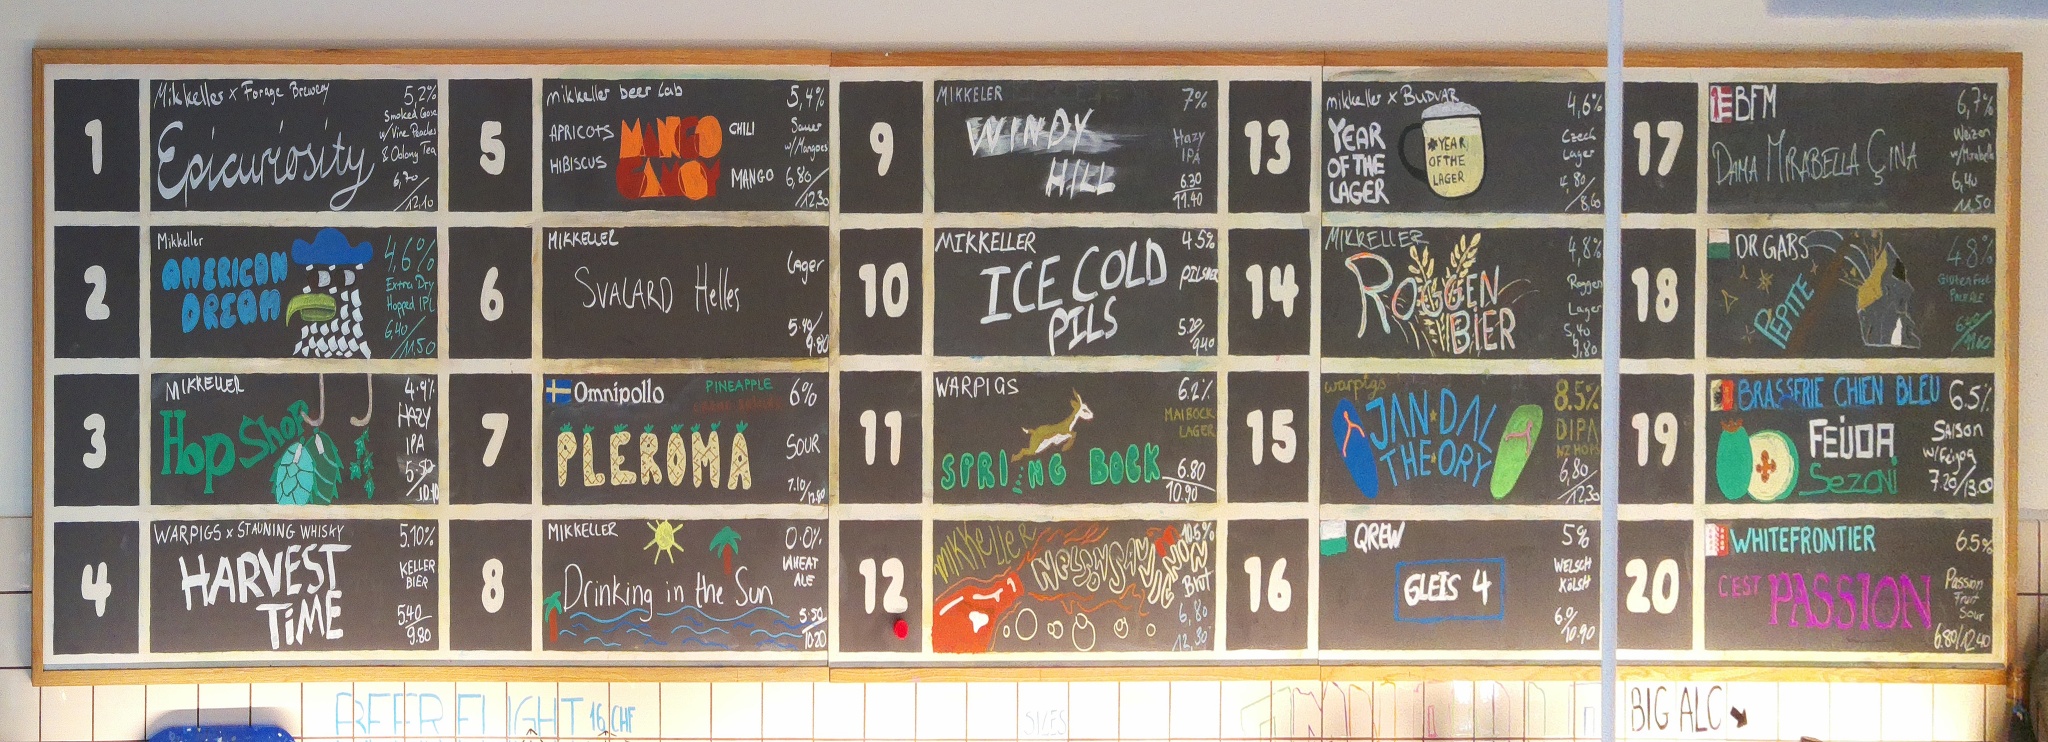 1
Mikkeller x Forage Brewery
5,2%
Epicuriosity
Smoked Gose
w/ Vine Peaches
& Oolong Tea
6,70/12,10
2
Mikkeller
4,6%
AMERICAN
DREAM
Extra Dry
Hopped IPL
6,40/11,50
3
MIKKELLER
4.9%
Hop Shop
HAZY
IPA
5.50/10.10
4
WARPIGS x STAUNING WHISKY
5.10%
HARVEST
TIME
KELLER
BIER
5.40/9.80
5
mikkeller beer lab
5,4%
APRICOTS
HIBISCUS
MANGO
CHILI
MANGO
Sauer
w/ Mangoes
6,80/12,30
6
MIKKELLER
SVALARD Helles
Lager
5.40/9.80
7
Omnipollo
PINEAPPLE
6%
PLEROMA
SOUR
7.10/12.80
8
MIKKELLER
0.0%
Drinking in the Sun
WHEAT
ALE
5.50/10.20
9
MIKKELER
7%
WINDY
HILL
Hazy
IPA
6.30/11.40
10
MIKKELLER
4.5%
ICE COLD
PILS
PILSNER
5.20/9.40
11
WARPIGS
6.2%
SPRING BOCK
MAIBOCK
LAGER
6.80/10.90
12
MIKKELLER
10.5%
NELSON SAUVIGNON
BRUT
6,80
12,30
13
mikkeller x BUDVAR
4,6%
YEAR
OF THE
LAGER
*YEAR
OF THE
LAGER
Czech
Lager
4,80/8,60
14
MIKKELLER
4,8%
ROGGEN
BIER
Roggen
Lager
5,40/9,80
15
warpigs
8.5%
JAN·DAL
THE·ORY
DIPA
NZ HOPS
6,80/12,30
16
QREW
5%
GLEIS 4
WELSCH
KÖLSH
6.0/10.90
17
BFM
6,7%
DAMA MIRABELLA ÇINA
Weizen
w/Mirabelle
6,40
11,50
18
DR GABS
4.8%
PEPITE
Gluten Free
PALE ALE
19
BRASSERIE CHIEN BLEU
6.5%
FEIJOA
Sezoni
SAISON
w/Feijoa
7.20/13.00
20
WHITEFRONTIER
6.5%
C'EST PASSION
Passion
Fruit
Sour
6.80/12.40
BEER FLIGHT 16 CHF
SIZES
BIG ALC